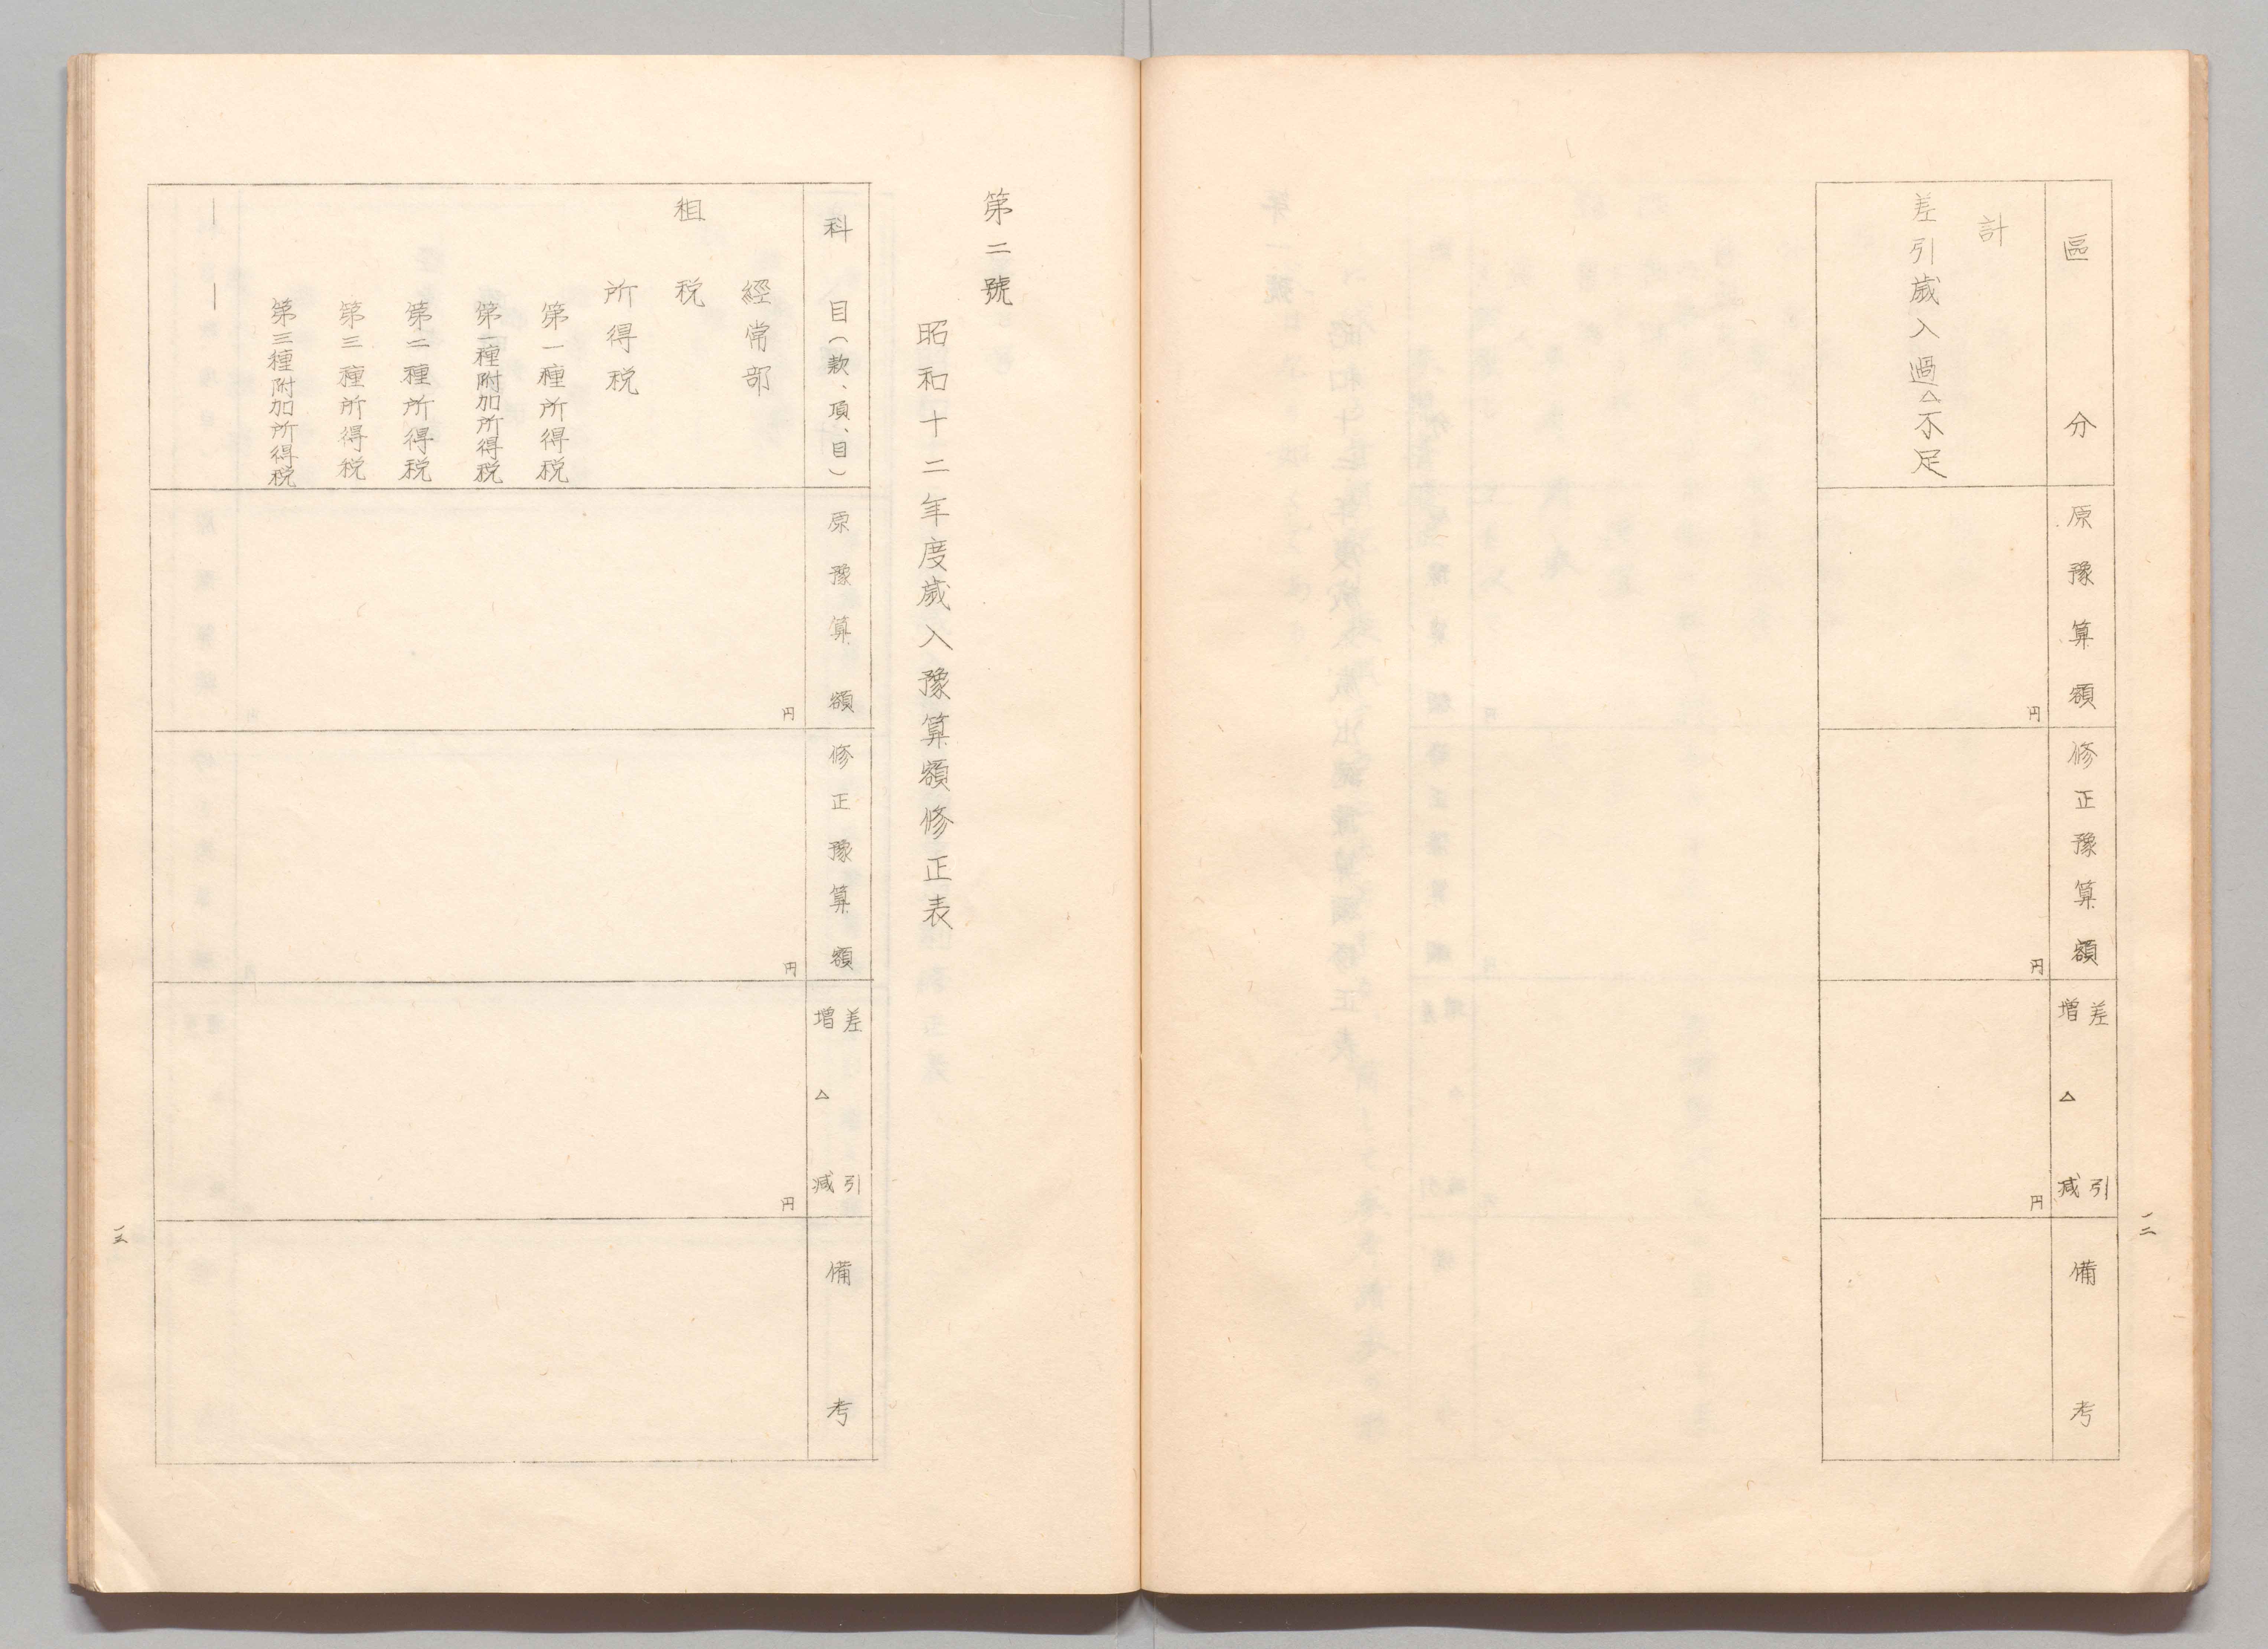 區分
計
差引歳入過△不足
原豫算額
円
修正豫算額
円
差引
増△減
円
備考
一二
第二號
昭和十二年度歳入豫算額修正表
科目(款、項、目)
經常部
租税
所得税
第一種所得税
第一種附加所得税
第二種所得税
第三種所得税
第三種附加所得税
原豫算額
円
修正豫算額
円
差引
増△減
円
備考
一三